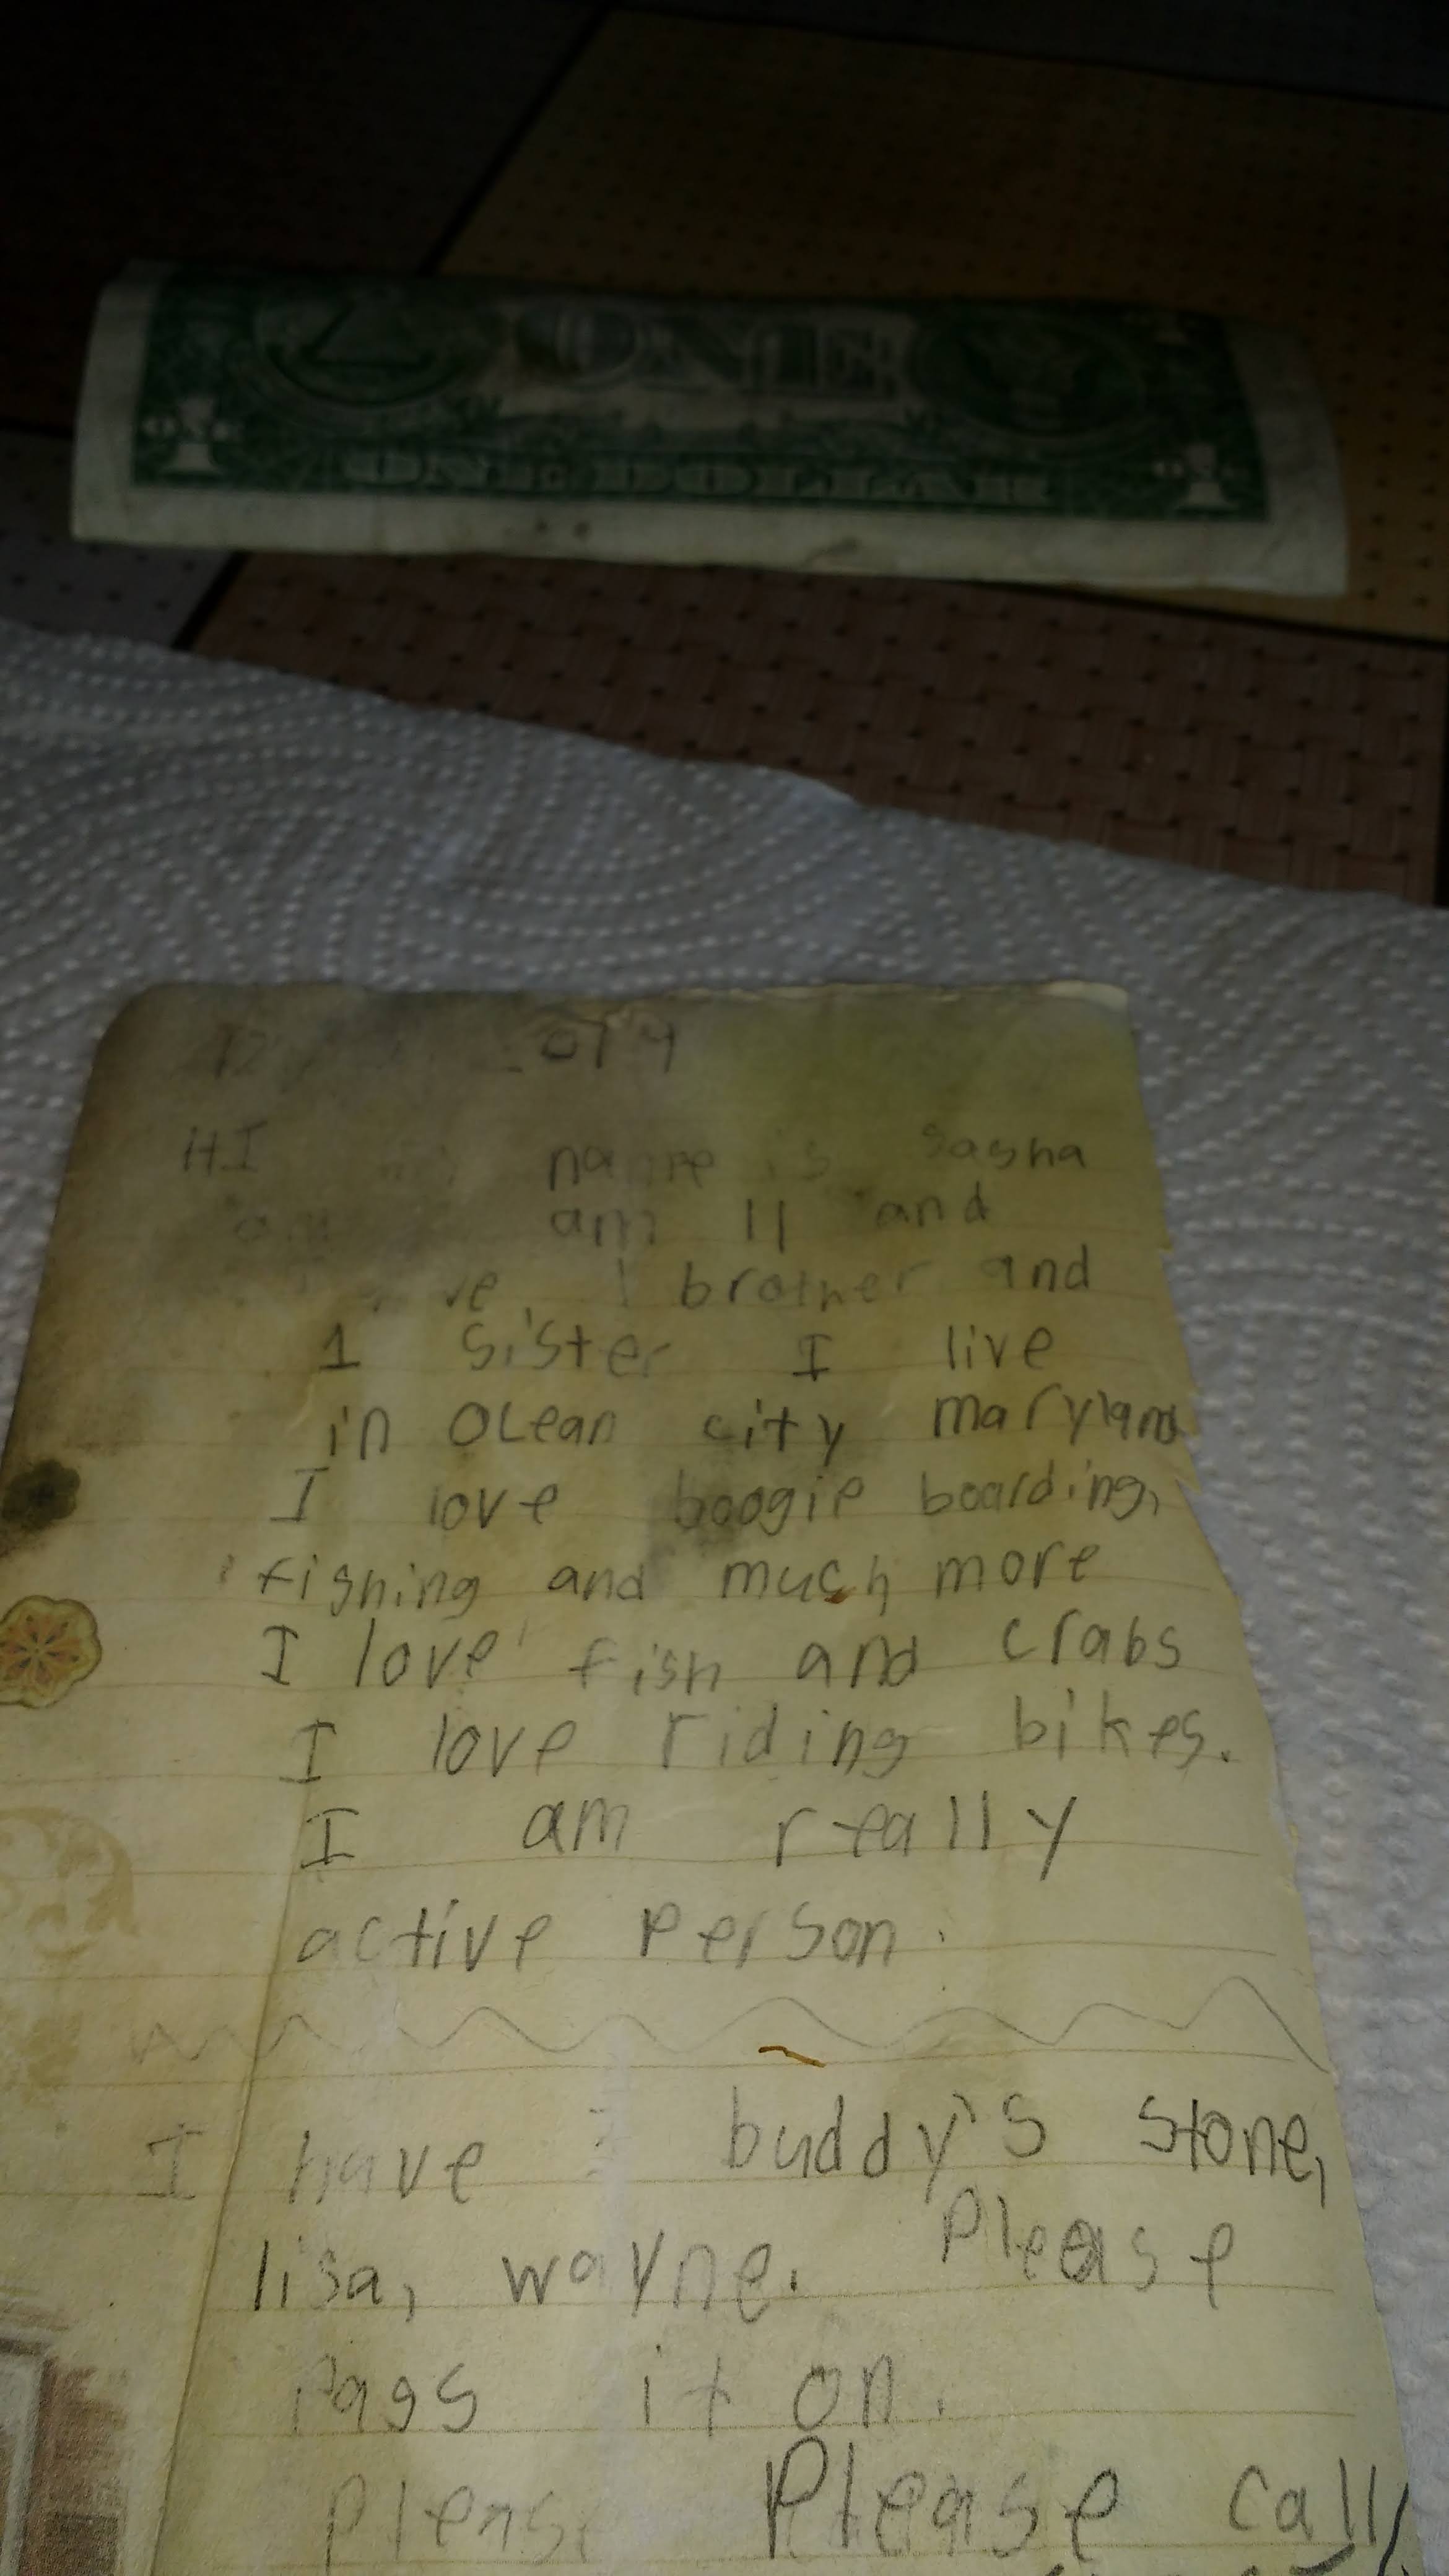 ONE
ONE DOLLAR
ONE
1
ONE
1
12 014
HI name is Sasha
am 11 and
1 brother and
1 sister I live
in Ocean city maryland
I love boogie boarding,
fishing and much more
I love fish and crabs
I love riding bikes.
I am really
active person.
I have buddy's stone,
lisa, wayne. Please
Pass it on.
Please call